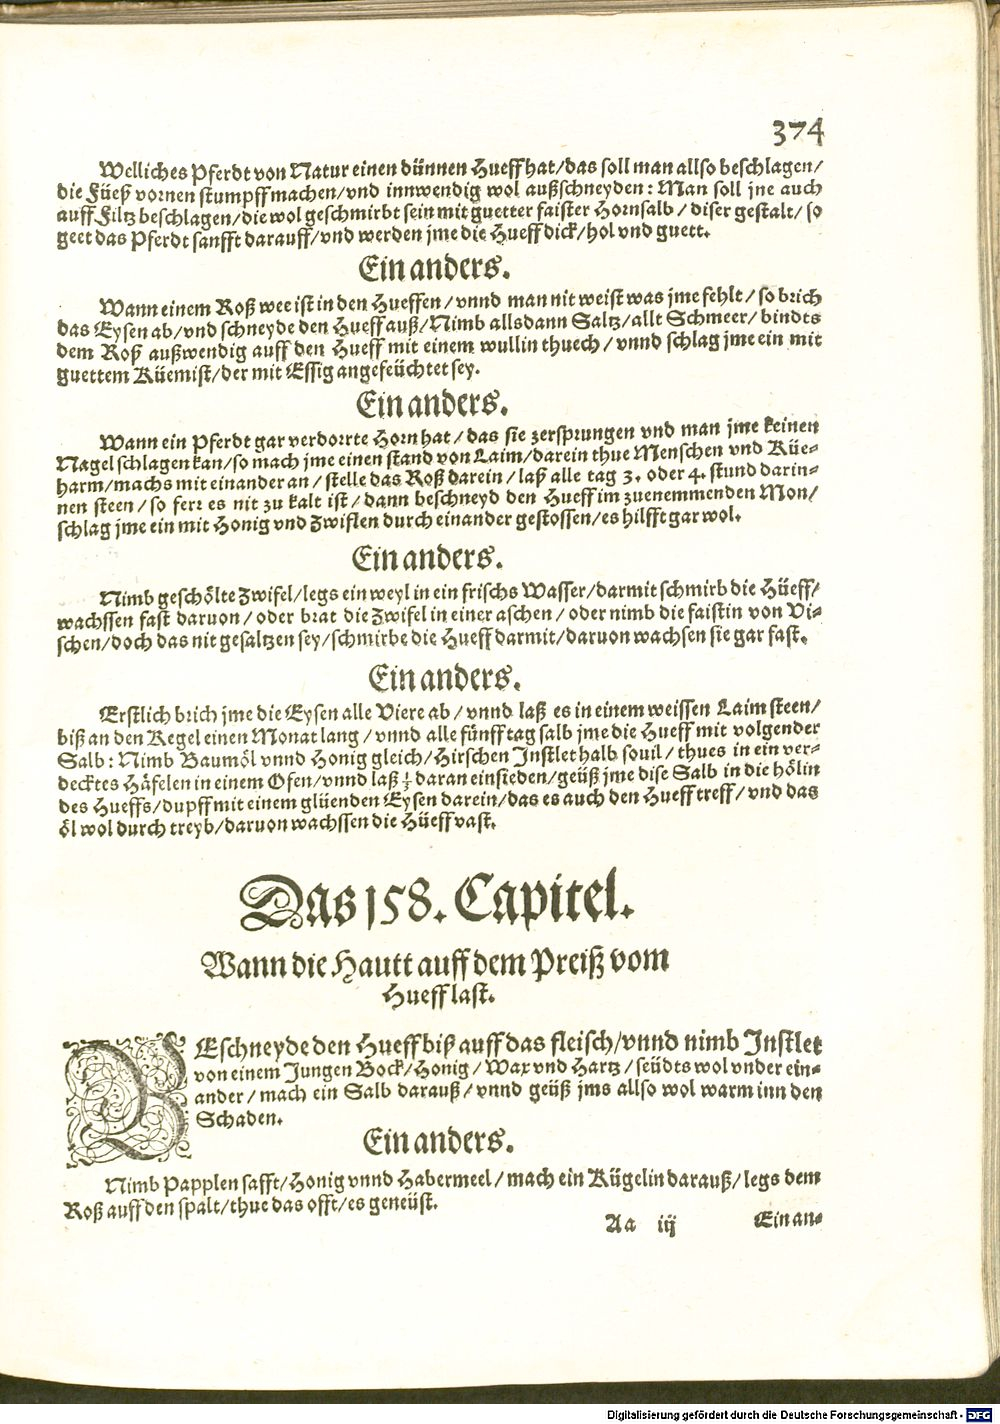 374
Welliches Pferdt von Natur einen dünnen Hueff hat/das soll man allso beschlagen/
die Füeß vornen stumpff machen/vnd innwendig wol außschneyden: Man soll jne auch
auff Filtz beschlagen/die wol geschmirbt sein mit guetter faister Hornsalb/diser gestalt/so
geet das Pferdt sanfft darauff/vnd werden jme die Hueff dick/hol vnd guett.
Ein anders.
Wann einem Roß wee ist in den Hueffen/vnnd man nit weist was jme fehlt/so brich
das Eysen ab/vnd schneyde den Hueff auß/Nimb allsdann Saltz/allt Schmeer/bindts
dem Roß außwendig auff den Hueff mit einem wullin thuech/vnnd schlag jme ein mit
guettem Küemist/der mit Essig angefeüchtet sey.
Ein anders.
Wann ein Pferdt gar verdorrte Horn hat/das sie zersprungen vnd man jme keinen
Nagel schlagen kan/so mach jme einen stand von Laim/darein thue Menschen vnd Küe-
harm/machs mit einander an/stelle das Roß darein/laß alle tag 3. oder 4. stund darin-
nen steen/so ferr es nit zu kalt ist/dann beschneyd den Hueff im zuenemmenden Mon/
schlag jme ein mit Honig vnd Zwiflen durch einander gestossen/es hilfft gar wol.
Ein anders.
Nimb geschölte Zwifel/legs ein weyl in ein frischs Wasser/darmit schmirb die Hüeff/
wachssen fast daruon/oder brat die Zwifel in einer aschen/oder nimb die faistin von Vi-
schen/doch das nit gesaltzen sey/schmirbe die Hueff darmit/daruon wachsen sie gar fast.
Ein anders.
Erstlich brich jme die Eysen alle Viere ab/vnnd laß es in einem weissen Laim steen/
biß an den Kegel einen Monat lang/vnnd alle fünff tag salb jme die Hueff mit volgender
Salb: Nimb Baumöl vnnd Honig gleich/Hirschen Instlet halb souil/thues in ein ver-
decktes Häfelen in einem Ofen/vnnd laß daran einsieden/geüß jme dise Salb in die hölin
des Hueffs/dupff mit einem glüenden Eysen darein/das es auch den Hueff treff/vnd das
öl wol durch treyb/daruon wachssen die Hüeff vast.
Das 158. Capitel.
Wann die Hautt auff dem Preiß vom
Hueff last.
BEschneyde den Hueff biß auff das fleisch/vnnd nimb Instlet
von einem Jungen Bock/Honig/Wax vnd Hartz/seüdts wol vnder ein-
ander/mach ein Salb darauß/vnnd geüß jms allso wol warm inn den
Schaden.
Ein anders.
Nimb Papplen safft/Honig vnnd Habermeel/mach ein Kügelin darauß/legs dem
Roß auff den spalt/thue das offt/es geneüst.
Aa iij Ein an-
Digitalisierung gefördert durch die Deutsche Forschungsgemeinschaft - DFG